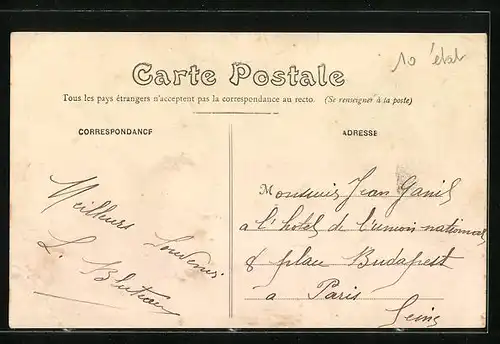 10 état
Carte Postale
Tous les pays étrangers n'acceptent pas la correspondance au recto. (Se renseigner à la poste)
CORRESPONDANCE
ADRESSE
Meilleurs Souvenirs
L.
Monsieur Jean
a l'hotel de l'union national
8 place Budapest
à Paris
Seine